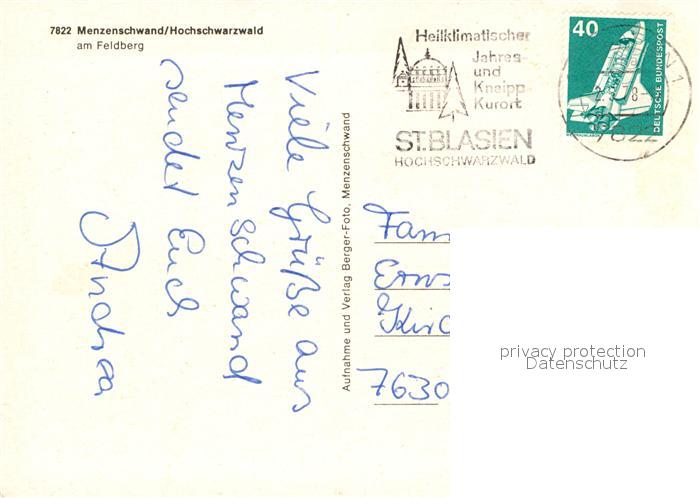 7822 Menzenschwand/Hochschwarzwald
am Feldberg
Heilklimatischer
Jahres-
und
Kneipp-
Kurort
ST.BLASIEN
HOCHSCHWARZWALD
40
DEUTSCHE BUNDESPOST
7822
Viele Grüße aus
Menzenschwand
sendet Euch
Andrea
Aufnahme und Verlag Berger-Foto, Menzenschwand
Fam
7630
privacy protection
Datenschutz